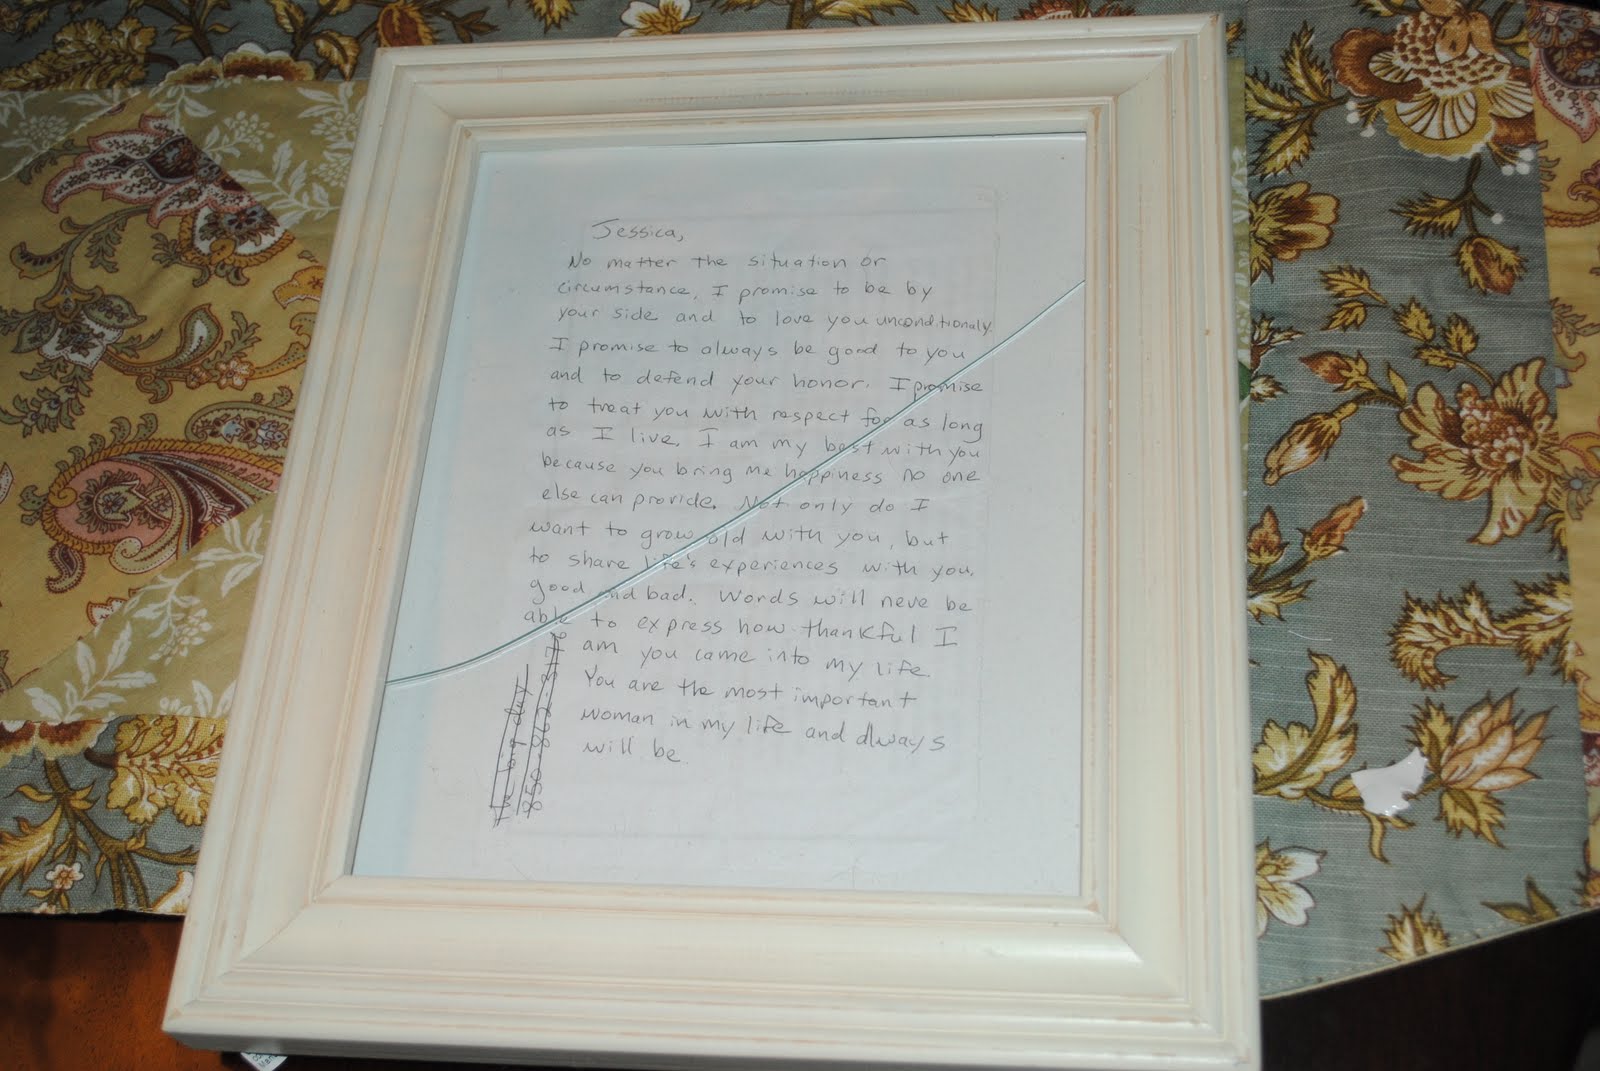 Jessica,
No matter the situation or
circumstance, I promise to be by
your side and to love you unconditionaly.
I promise to always be good to you
and to defend your honor. I promise
to treat you with respect for as long
as I live. I am my best with you
because you bring me happiness no one
else can provide. Not only do I
want to grow old with you, but
to share life's experiences with you,
good and bad. Words will neve be
able to express how thankful I
am you came into my life.
You are the most important
woman in my life and always
will be.
big